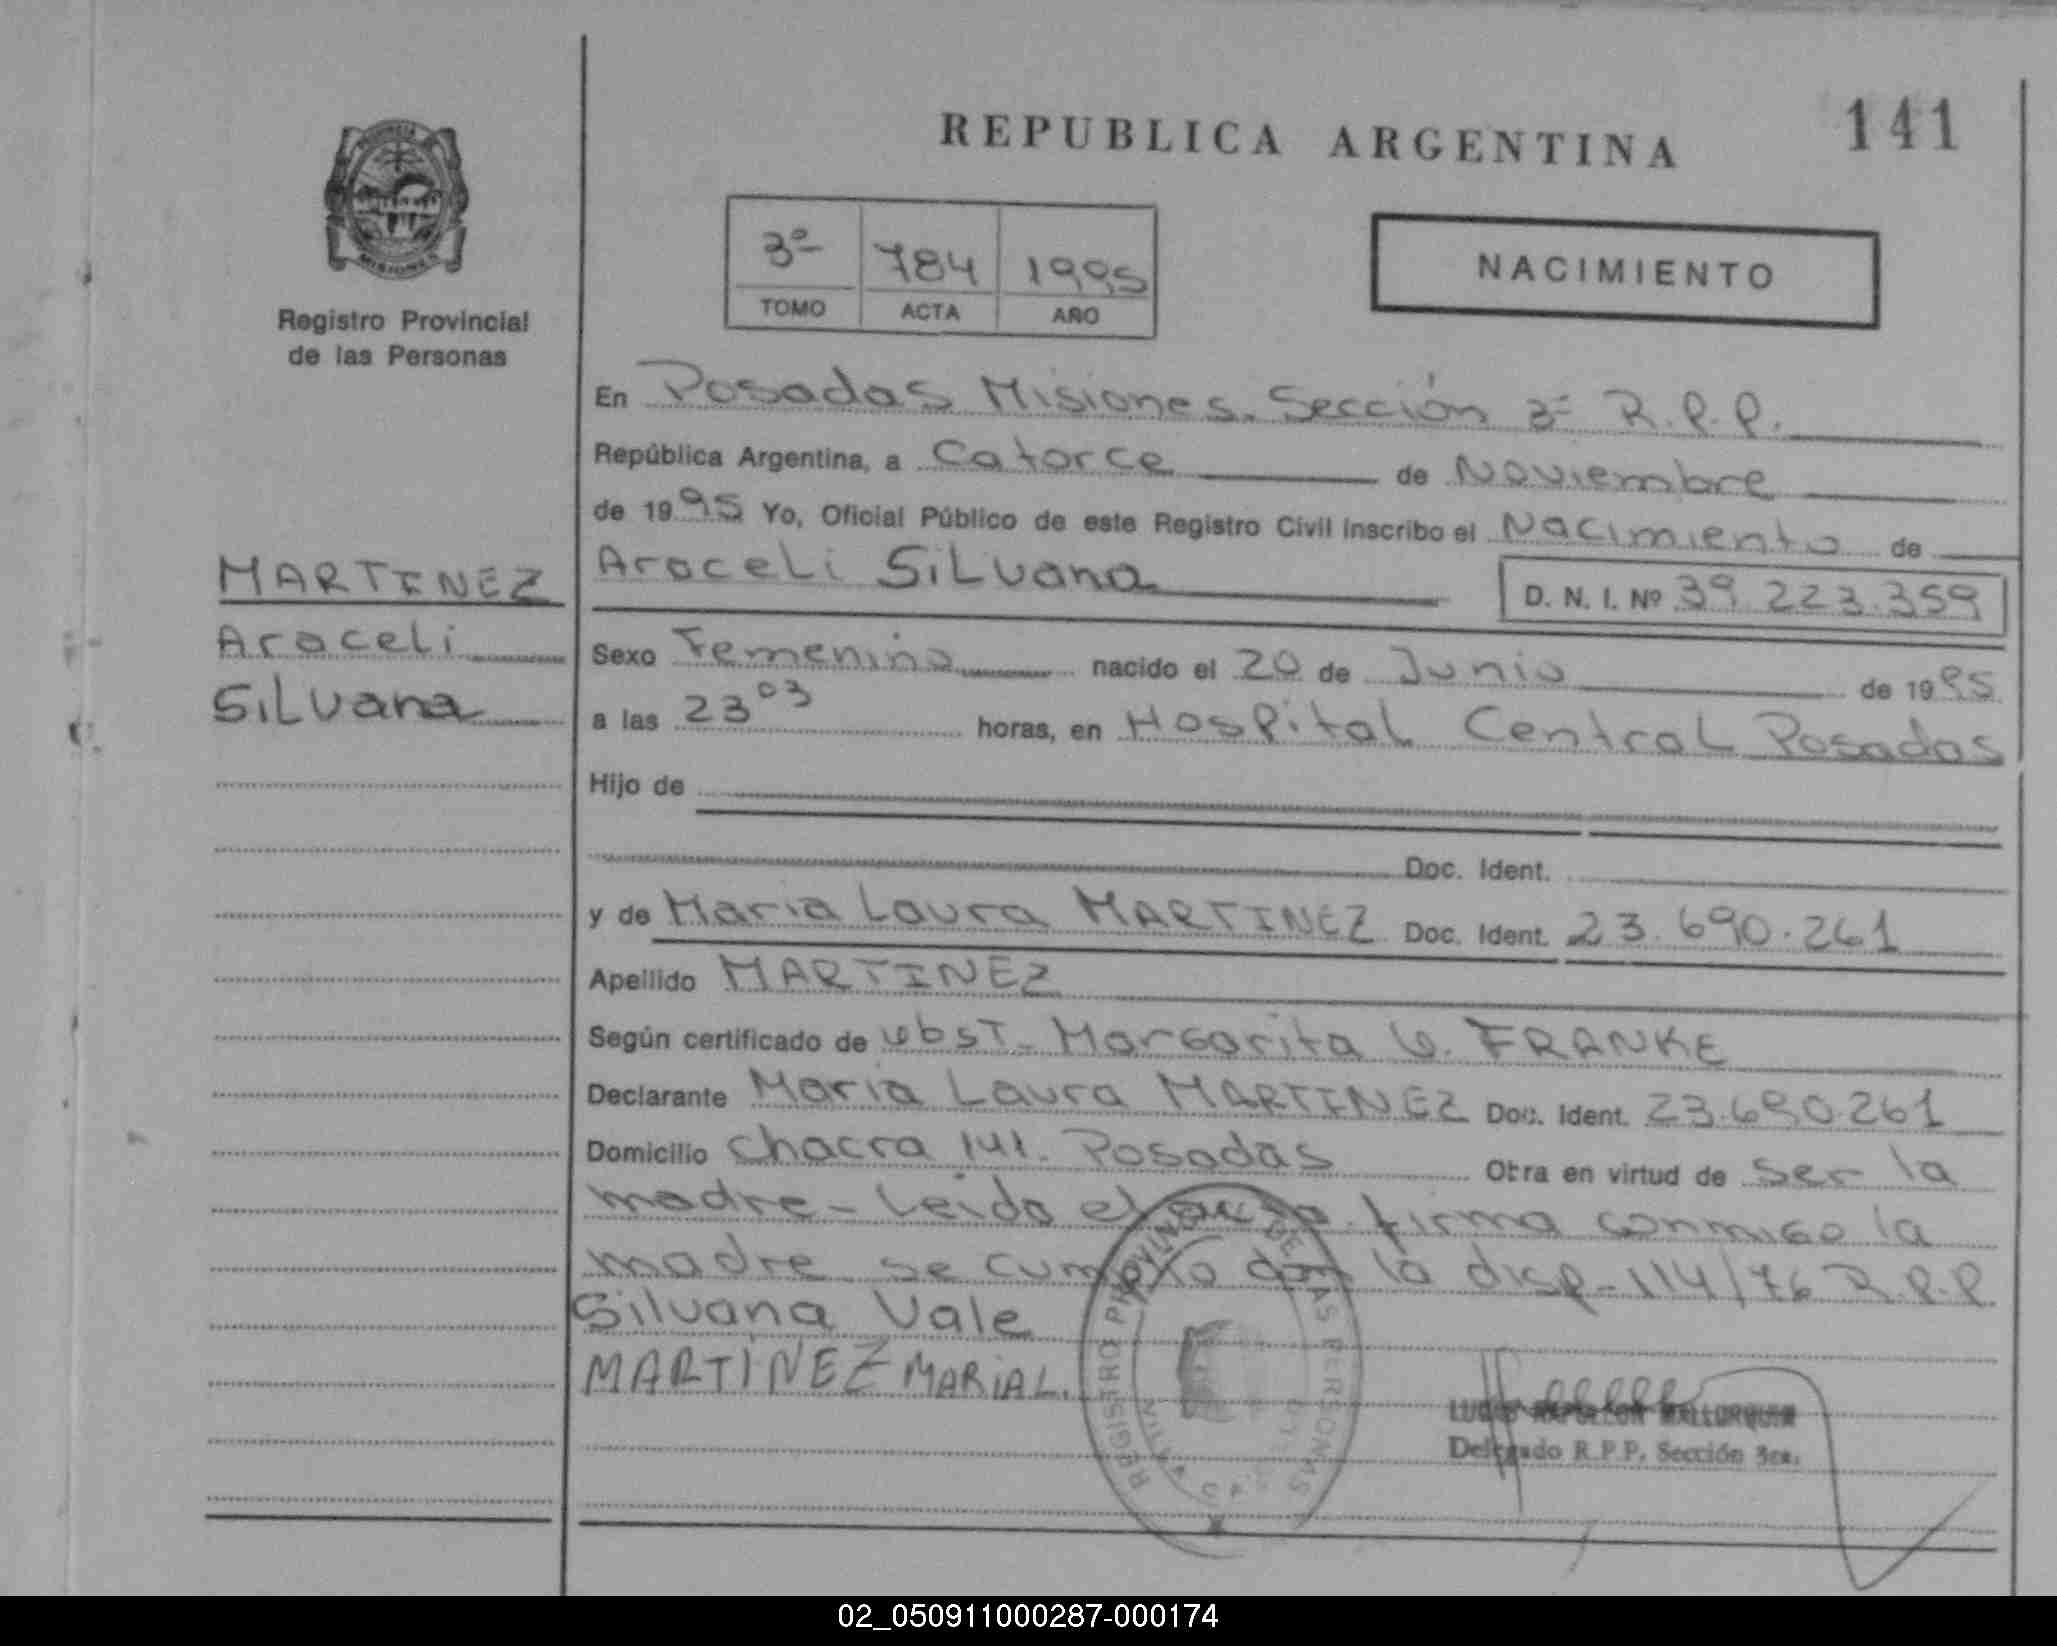 REPUBLICA ARGENTINA
141
PROVINCIA
MISIONES
Registro Provincial
de las Personas
3º 784 1995
TOMO ACTA AÑO
NACIMIENTO
En Posadas Misiones. Sección 3º R.P.P.
República Argentina, a Catorce de Noviembre
de 1995 Yo, Oficial Público de este Registro Civil inscribo el Nacimiento de
MARTINEZ
Araceli
Silvana
Araceli Silvana D. N. I. Nº 39.223.359
Sexo Femenino nacido el 20 de Junio de 1995
a las 23 03 horas, en Hospital Central Posadas
Hijo de
Doc. Ident.
y de Maria Laura MARTINEZ Doc. Ident. 23.690.261
Apellido MARTINEZ
Según certificado de obst. Margarita G. FRANKE
Declarante Maria Laura MARTINEZ Doc. Ident. 23.690.261
Domicilio Chacra 141. Posadas Obra en virtud de ser la
madre - Leido el acta firma conmigo la
madre se cumplio con la disp-114/76 R.P.P
Silvana Vale
MARTINEZ MARIA L.
REGISTRO PROVINCIAL DE LAS PERSONAS
LUCIO NAPOLEON MALLORQUIN
Delegado R.P.P. Sección 3ra.
02_050911000287-000174